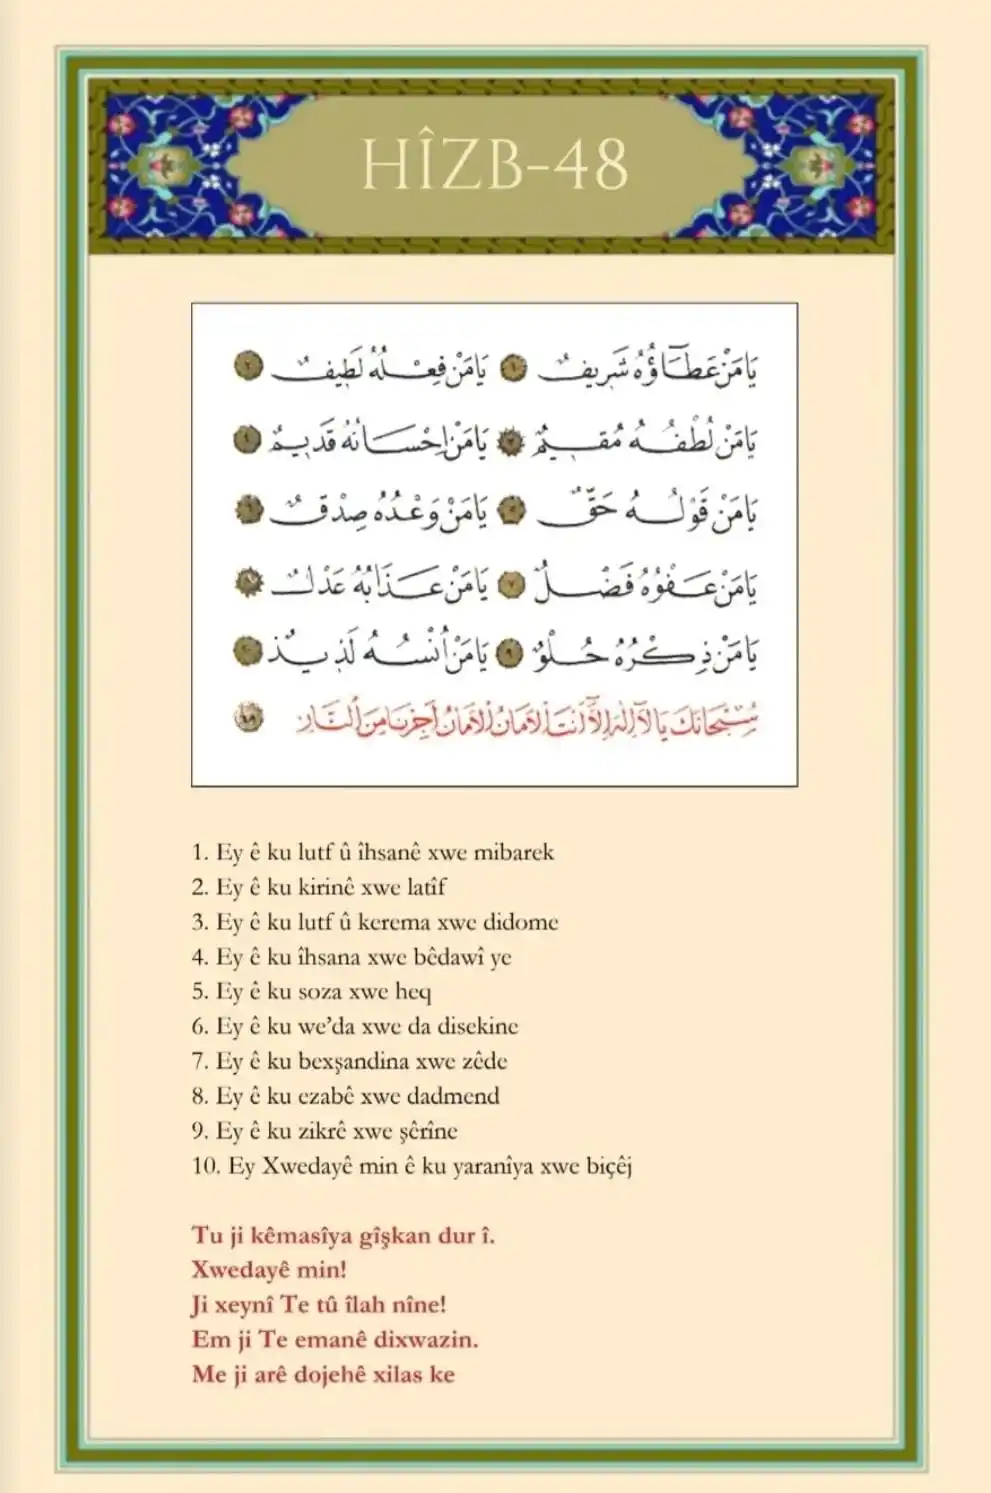 HÎZB-48
يَا مَنْ عَطَاؤُهُ شَرِيفٌ ١ يَا مَنْ فِعْلُهُ لَطِيفٌ ٢
يَا مَنْ لُطْفُهُ مُقِيمٌ ٣ يَا مَنْ اِحْسَانُهُ قَدِيمٌ ٤
يَا مَنْ قَوْلُهُ حَقٌّ ٥ يَا مَنْ وَعْدُهُ صِدْقٌ ٦
يَا مَنْ عَفْوُهُ فَضْلٌ ٧ يَا مَنْ عَذَابُهُ عَدْلٌ ٨
يَا مَنْ ذِكْرُهُ حُلْوٌ ٩ يَا مَنْ اُنْسُهُ لَذِيذٌ ١٠
سُبْحَانَكَ يَا لَآ اِلٰهَ اِلَّآ اَنْتَ الْاَمَانُ الْاَمَانُ اَجِرْنَا مِنَ النَّارِ
1. Ey ê ku lutf û îhsanê xwe mibarek
2. Ey ê ku kirinê xwe latîf
3. Ey ê ku lutf û kerema xwe didome
4. Ey ê ku îhsana xwe bêdawî ye
5. Ey ê ku soza xwe heq
6. Ey ê ku we’da xwe da disekine
7. Ey ê ku bexşandina xwe zêde
8. Ey ê ku ezabê xwe dadmend
9. Ey ê ku zikrê xwe şêrîne
10. Ey Xwedayê min ê ku yaranîya xwe biçêj
Tu ji kêmasîya gîşkan dur î.
Xwedayê min!
Ji xeynî Te tû îlah nîne!
Em ji Te emanê dixwazin.
Me ji arê dojehê xilas ke